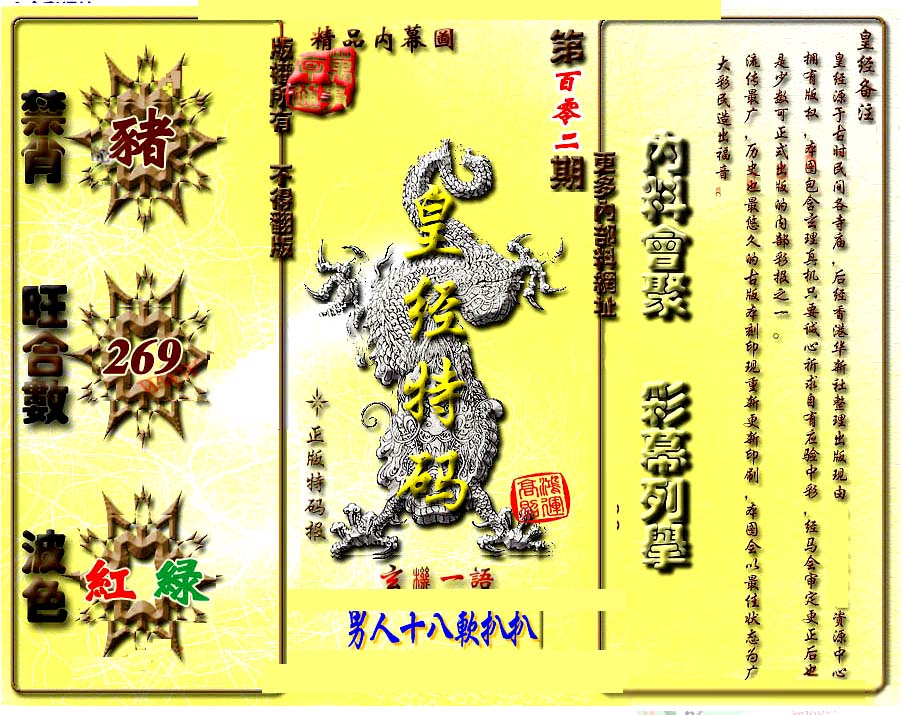 禁肖
豬
旺合數
269
波色
紅 綠
版權所有 不得翻版
精品内幕圖
第百零二期
皇经特码
正版特码报
鴻運高照
玄機一語
男人十八軟扒扒
更多内部料網址
内料會聚
彩幕列舉
皇经备注
皇经源于古时民间各寺庙,后经香港华新社整理出版现由 资源中心
拥有版权,本图包含玄理真机只要诚心祈求自有应验中彩,经马会审定更正后也
是少数可正式出版的内部彩报之一。
流传最广,历史也最悠久的古版本刻印现重新更新印刷,本图会以最佳状态为广
大彩民造出福音